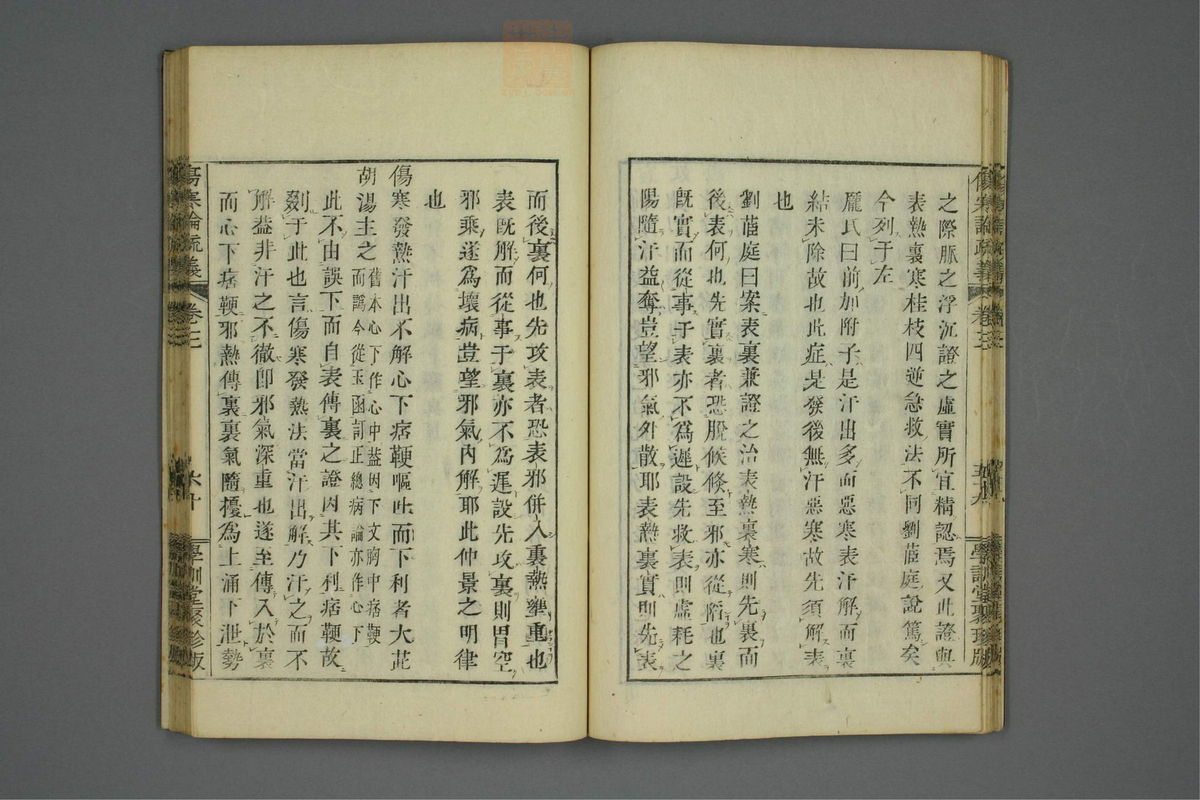 之際脈之浮沉證之虛實所宜精認焉又此證與
表熱裏寒桂枝四逆急救法不同劉茝庭說篤矣
今列于左
龐氏曰前加附子是汗出多而惡寒表汗解而裏
結未除故也此症是發後無汗惡寒故先須解表
也
劉茝庭曰案表裏兼證之治表熱裏寒則先裏而
後表何也先實裏者恐脫候倏至邪亦從陷也裏
既實而從事于表亦不爲遲設先救表則虛耗之
陽隨汗益奪豈望邪氣外散耶表熱裏實則先表
傷寒論疏義 卷三 五十九 學訓堂聚珍版
而後裏何也先攻表者恐表邪併入裏熱壅重也
表既解而從事于裏亦不爲遲設先攻裏則胃空
邪乘遂爲壞病豈望邪氣內解耶此仲景之明律
也
傷寒發熱汗出不解心下痞鞕嘔吐而下利者大茈
胡湯主之舊本心下作心中益因下文胸中痞鞕
而譌今從玉函訂正總病論亦作心下
此不由誤下而自表傳裏之證因其下利痞鞕故
列于此也言傷寒發熱法當汗出解乃汗之而不
解益非汗之不徹卽邪氣深重也遂至傳入於裏
而心下痞鞕邪熱傳裏裏氣隨擾爲上涌下泄勢
傷寒論疏義 卷三 六十 學訓堂聚珍版